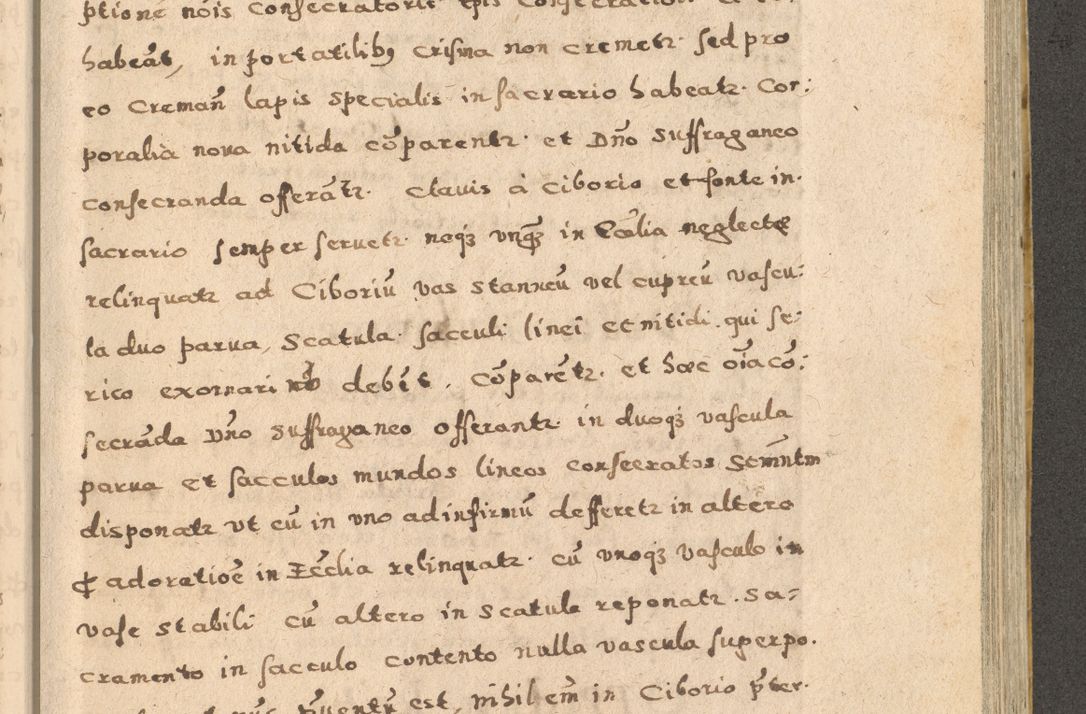 ptionē nōis Consecratoris epis Consecration
habeāt, in portatilibꝫ Crisma non cremetr. sed pro
eo Cremañ lapis specialis in sacrario habeatr. Cor:
poralia noua nitida cōparentr. et Dn̄o Suffraganeo
consecranda offerātr. Clauis à Ciborio et fonte in.
sacrario semper seruetr. neqꝫ vnqꝫ in Eccl̄ia neglecte
relinquatr ad Ciboriū vas stanneū vel cupreū vascu:
la duo parua, Scatula. sacculi linei et nitidi. qui se:
rico exornari debēt. Cōparētr. et hæc oīa cō:
secrāda Dn̄o Suffraganeo offerantr. in duoqꝫ vascula
parua et sacculos mundos lineos consecratos Scm̄ntm
disponatr vt cū in vno ad infirmū defferetr in altero
ꝓ adoratiōe in Eccl̄ia relinquatr. cū vnoqꝫ vasculo in
vase stabili cū altero in scatula reponatr. Sa:
cramento in sacculo contento nulla vascula superpo.
est, nihil em̄ in Ciborio p̄ter.